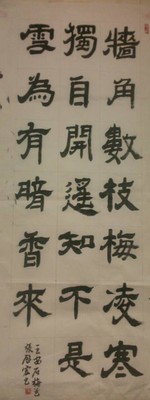 牆角數枝梅凌寒
獨自開遥知不是
雪為有暗香來
王安石梅花